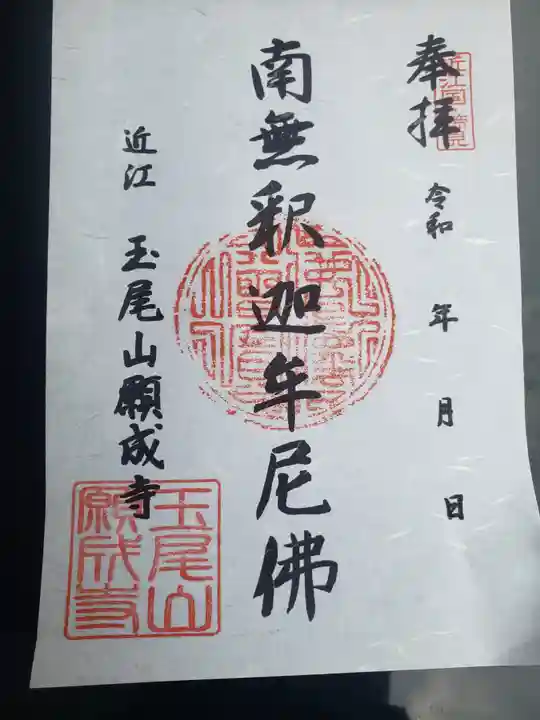 奉拝
令和 年 月 日
南無釈迦牟尼佛
近江 玉尾山願成寺
玉尾山
願成寺